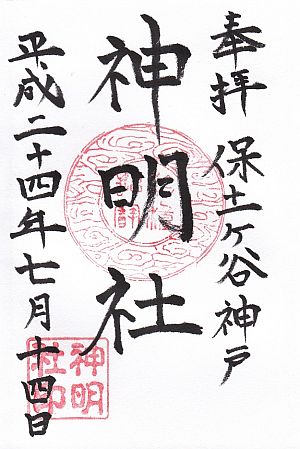 奉拝 保土ヶ谷神戸
神明社
平成二十四年七月十四日
神明
社印